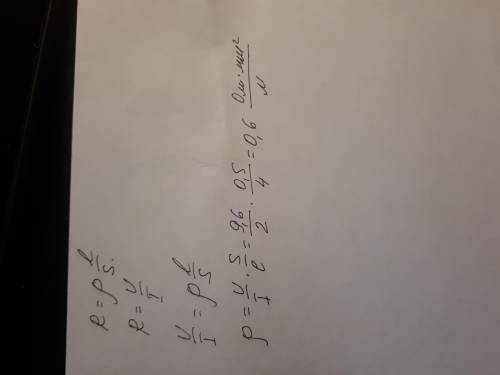 R = ρ l/S.
R = U/I
U/I = ρ l/S
ρ = U/I · S/l = 9,6/2 · 0,5/4 = 0,6 Ом·мм²/м